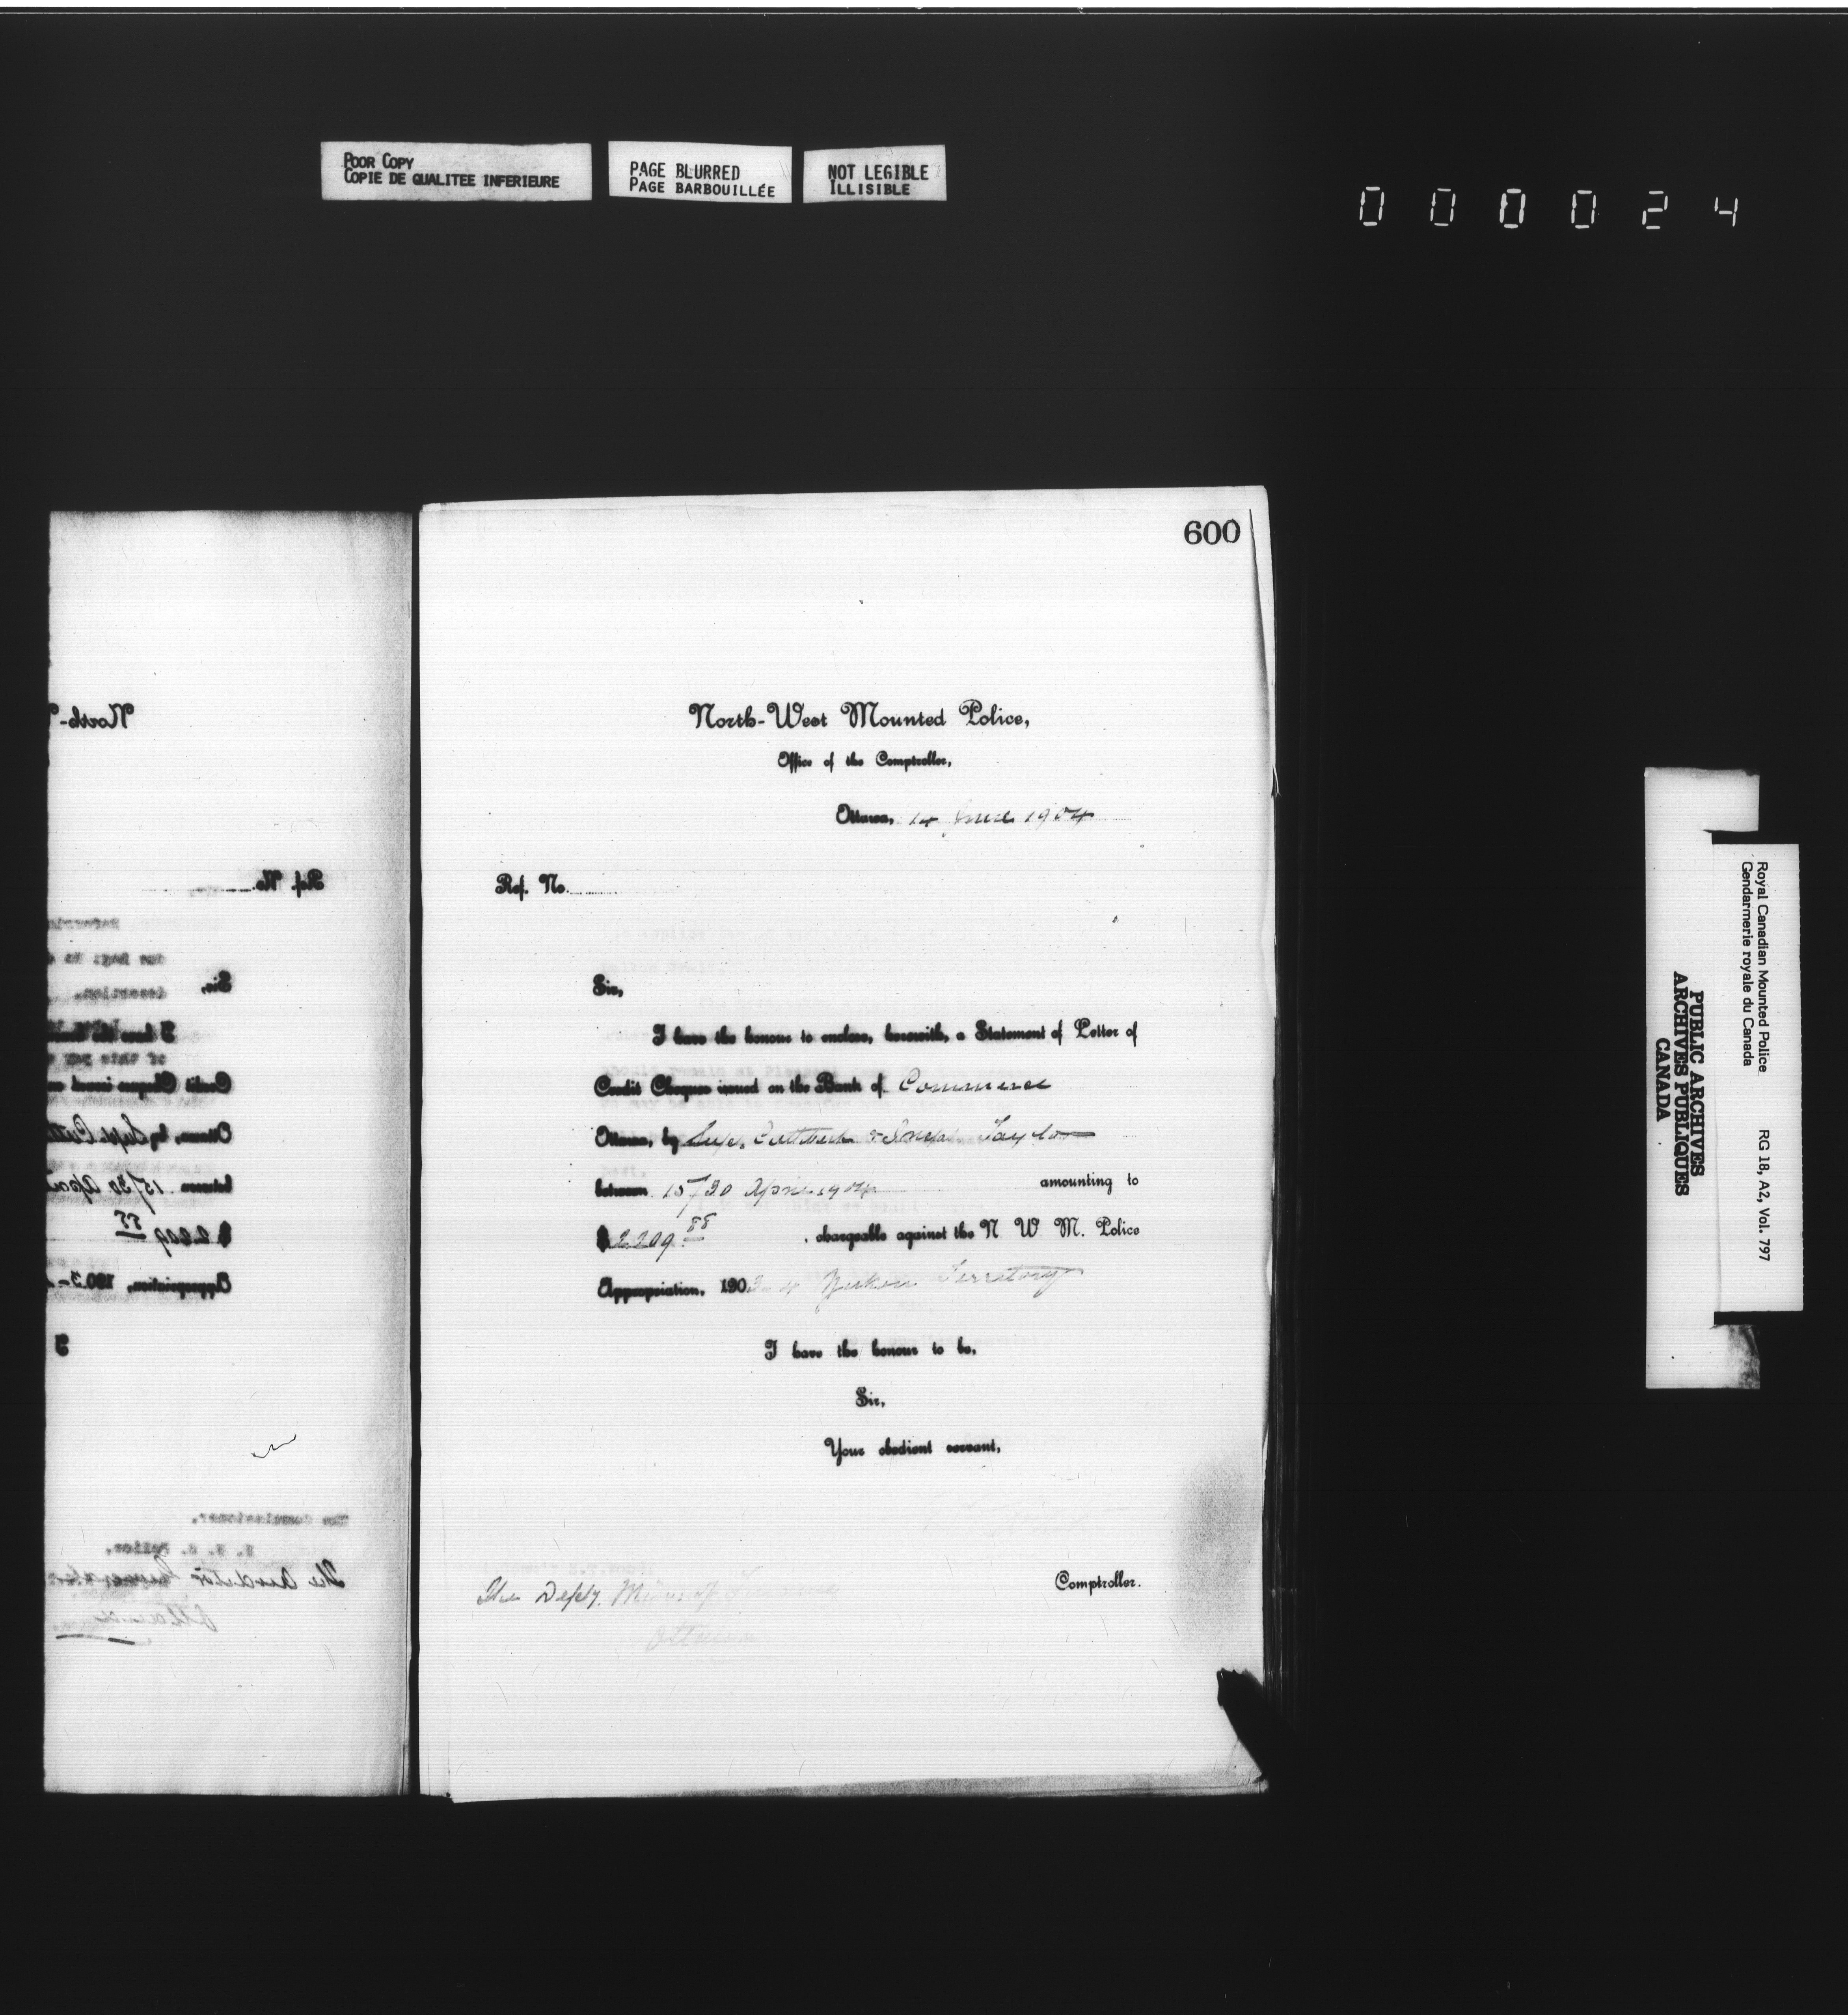 POOR COPY
COPIE DE QUALITEE INFERIEURE
PAGE BLURRED
PAGE BARBOUILLÉE
NOT LEGIBLE
ILLISIBLE
000024
600
North-West Mounted Police,
Office of the Comptroller,
Ottawa, 14 June 1904
Ref. No.
Sir,
I have the honour to enclose, herewith, a Statement of Letter of
Credit Cheques issued on the Bank of Commerce
Ottawa, by Supt. Cuthbert & Inspr. Taylor
between 15/30 April 1904 amounting to
$2209.88, chargeable against the N W M. Police
Appropriation, 1903-4 Yukon Territory
I have the honour to be,
Sir,
Your obedient servant,
Comptroller.
The Depty. Min. of Finance
Ottawa
North-
Ref. No.
Sir,
I have the honour
Credit Cheques issued on
Ottawa, by Supt. Cuth
between 15/30 April
$2209.88
Appropriation, 1903-
I
The Commissioner,
N. W. M. Police,
The Auditor General
Ottawa
Royal Canadian Mounted Police
Gendarmerie royale du Canada
RG 18, A2, Vol. 797
PUBLIC ARCHIVES
ARCHIVES PUBLIQUES
CANADA